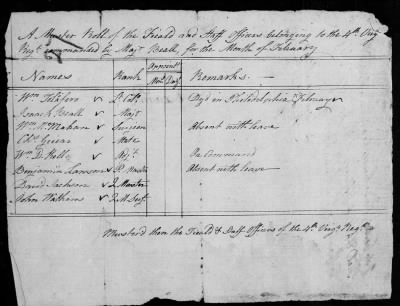 A Muster Roll of the Field and Staff Officers belonging to the 4th Virg
Regt commanded by Majr Beall, for the Month of February
Names Rank Appoint Remarks. —
Wm Telifero Lt. Col. Dy'd in Philidelphia Februay
Isaack Beall Majr
Wm McMahan Surgeon Absent with leave
Chs Greear Mate
Wm B. Kelly Adjt On Command
Benjamin Lawson P. Master Absent with leave
David Jackson Q. Master
John Watkins Q. M. Sergt
Musterd then the Field & Staff Officers of the 4th Virga Regt